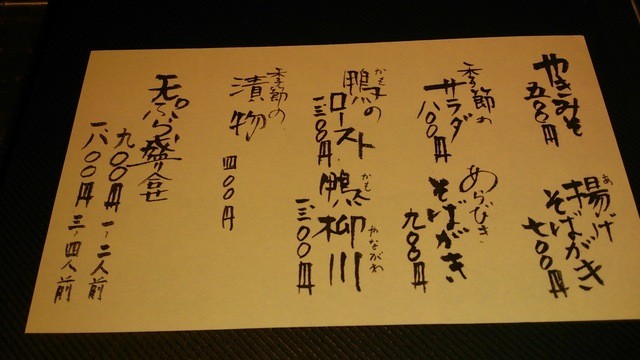 やきみそ
五〇〇円
揚げ
あ
そばがき
七〇〇円
季節の
サラダ
八〇〇円
あらびき
そばがき
九〇〇円
鴨の
かも
ロースト
一、三〇〇円
鴨柳川
かも やながわ
一、三〇〇円
季節の
漬物
四〇〇円
天ぷら盛り合せ
九〇〇円 一、二人前
一、八〇〇円 三、四人前